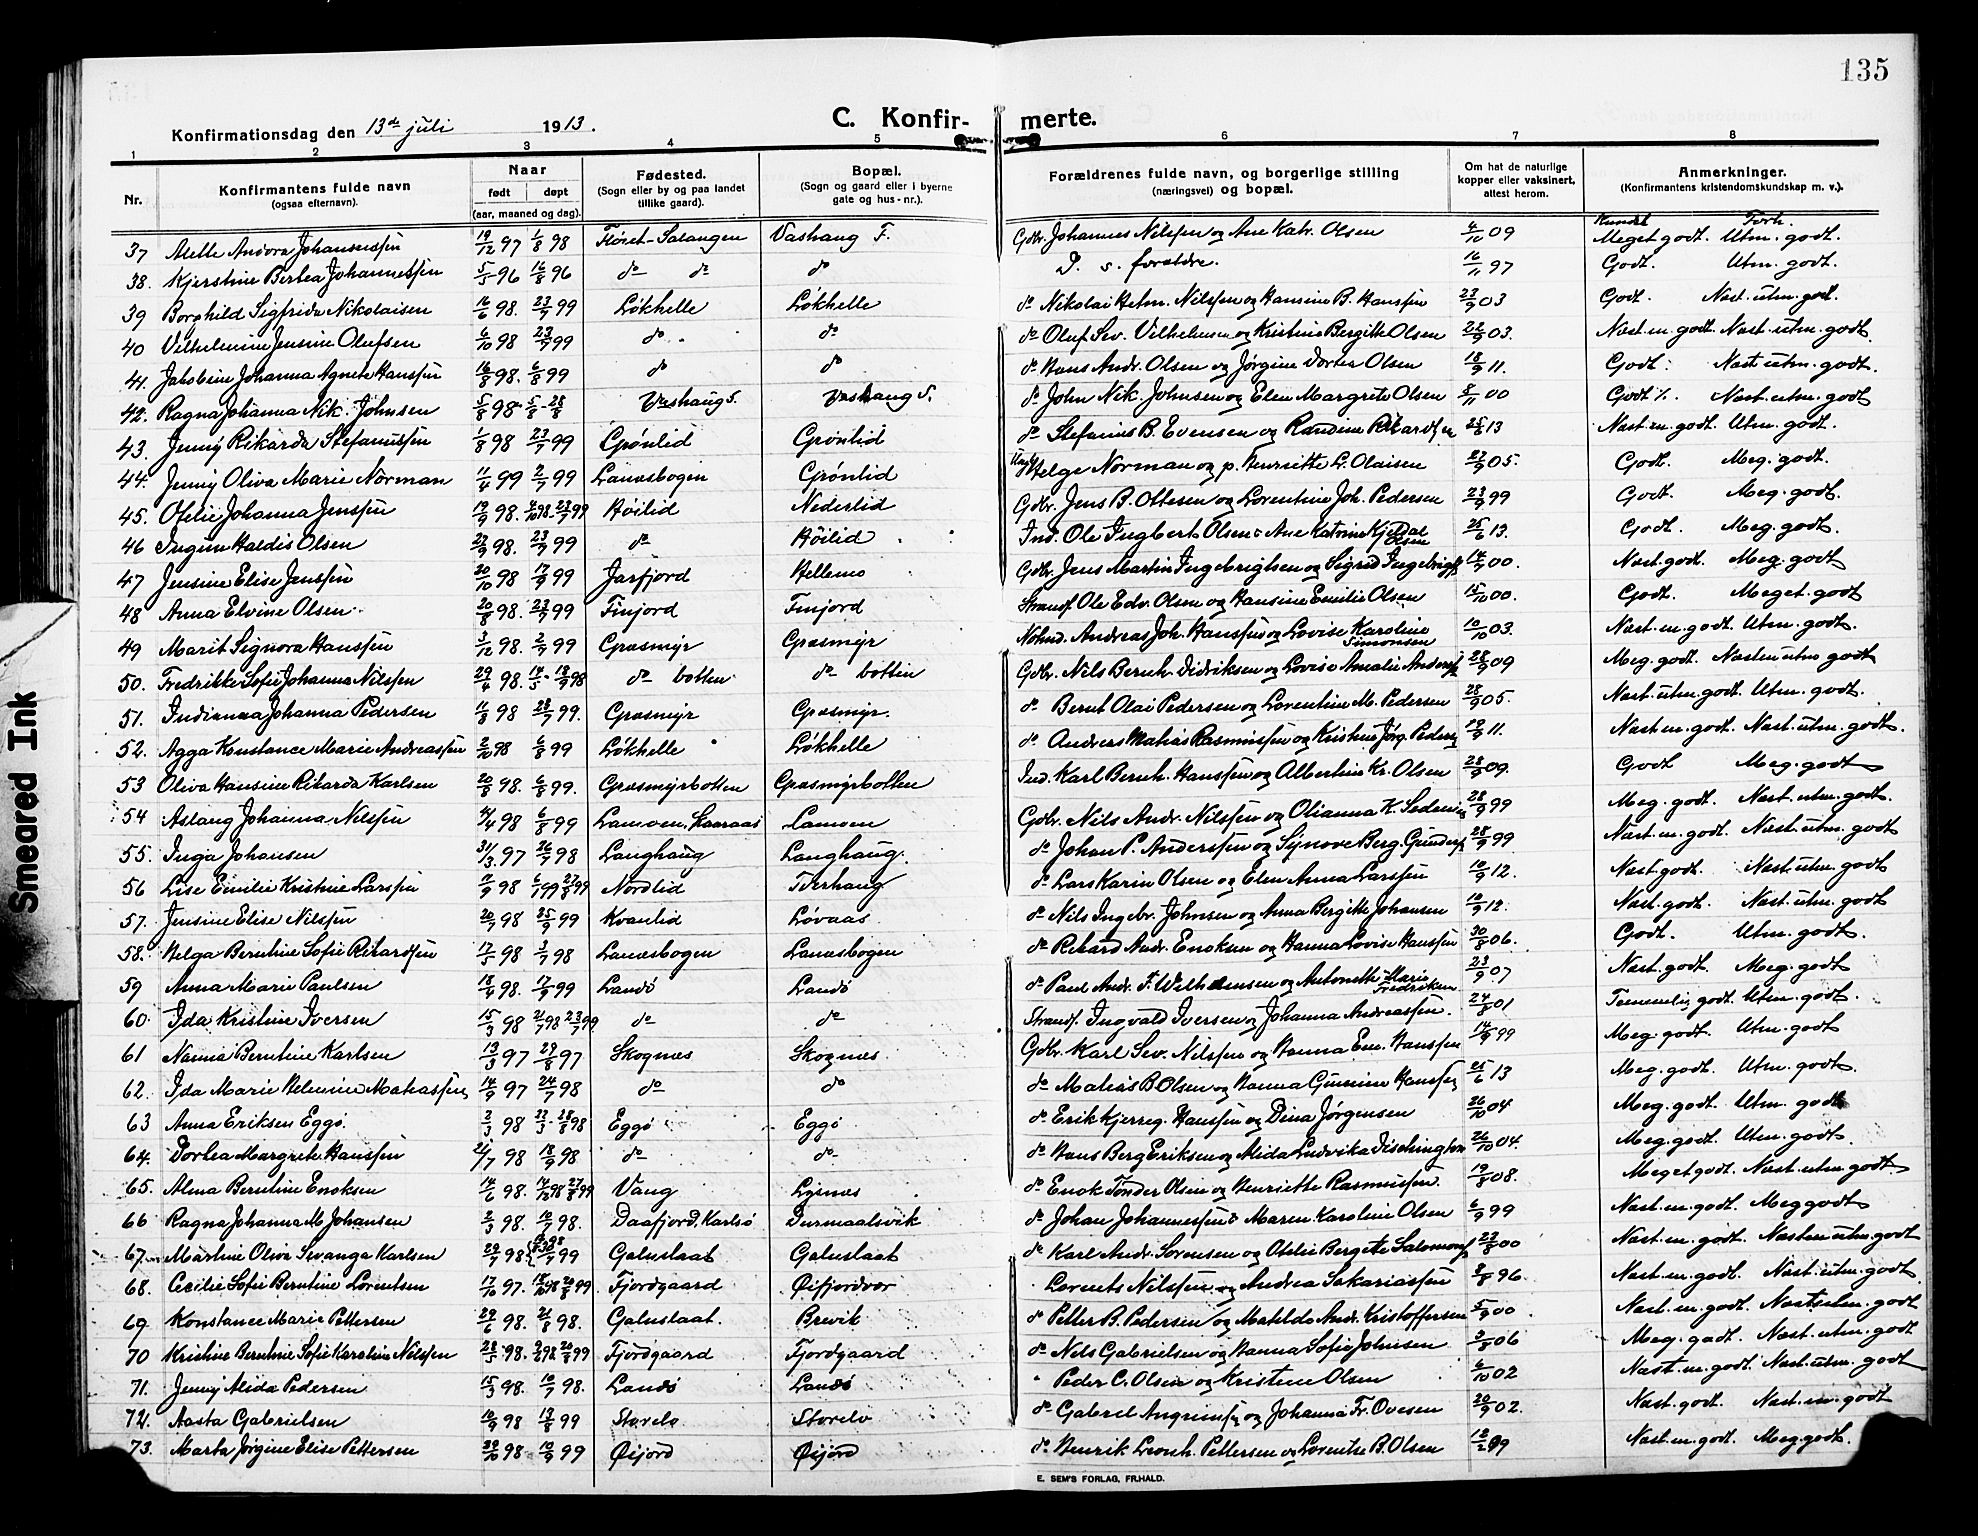 135
C. Konfirmerte.
Konfirmationsdag den 13de juli 1913.
1 2 3 4 5 6 7 8
Nr. Konfirmantens fulde navn (ogsaa efternavn). Naar født døpt (aar, maaned og dag). Fødested. (Sogn eller by og paa landet tillike gaard). Bopæl. (Sogn og gaard eller i byerne gate og hus-nr.). Forældrenes fulde navn, og borgerlige stilling (næringsvei) og bopæl. Om hat de naturlige kopper eller vaksinert, attest herom. Anmerkninger. (Konfirmantens kristendomskundskap m. v.).
Kundsk Forh.
37 Andora Johannessen 19/12 97 1/8 98 Fløiet-Salangen Vashaug F. Gdbr. Johannes Nilssen og Ane Katr. Olsen 4/10 09 Meget godt. Utm. godt.
38. Kjerstine Berlea Johannessen 5/5 96 16/8 96 do do do D. s. forældre. 16/11 97 Godt. Utm. godt.
39 Borghild Sigfrida Nikolaisen 16/6 98. 23/7 99 Løkhelle Løkhelle do Nikolai Helm. Nilssen og Hansine B. Hanssen 23/9 03 Godt. Næst. utm. godt.
40 Vilhelmine Jensine Olufsen 6/10 98 23/7 99 do do do Oluf Sev. Vilhelmsen og Kristine Bergitte Olsen 22/9 03. Næst. en. godt. Næst. utm. godt
41. Jakobine Johanna Agnete Hanssen 16/8 98. 6/8 99 do do do Hans Andr. Olsen og Jørgine Dortea Olsen 18/9 11. Godt. Næst utm. godt.
42. Ragna Johanna Nik. Johnsen 5/8 98 Vashaug S. Vashaug S. do John Nik. Johnsen og Elen Margrete Olsen 8/11 00 Godt. Næst. utm. godt
43. Jenny Rikarda Stefanussen 1/8 98 23/7 99 Grønlid Grønlid do Stefanus B. Evensen og Randine Rikardsen 25/6 13 Næst. en. godt. Utm. godt.
44. Jenny Oliva Marie Norman 11/4 99 2/7 99 Lanæsbogen Grønlid Helge Norman og p. Henriette L. Olaisen 27/9 05. Godt. Meg. godt.
45. Otelie Johanna Jenssen 19/9 98. Høilid Nederlid Gdbr. Jens B. Ottesen og Lorentine Joh. Pedersen 23/9 99 Godt. Meg. godt.
46 Ingine Haldis Olsen 29/9 98. 23/7 99 do Høilid Ind. Ole Ingbert Olsen & Ane Katrine Kjeldal Olsen 25/6 13. Godt. Meg. godt.
47 Jensine Elise Jenssen 20/10 98 17/9 99 Jarfjord Hellemo Gdbr. Jens Martin Ingebrigtsen og Sigrid 14/9 00. Næst. godt. Meg. godt
48 Anna Elvine Olsen 20/8 98. 23/7 99 Finjord Finjord Strands. Ole Edv. Olsen og Hansine Emilie Olsen 15/10 00. Godt. Meget. godt
49 Marit Signora Hanssen 3/12 98. 2/7 99 Græsmyr Græsmyr Andreas Joh. Hanssen og Lovise Karoline Simonsen 10/10 03. Næst. en. godt. Utm. godt.
50. Fredrikke Sofie Johanna Nilssen 29/4 98. do botten do botten Gdbr. Nils Bernh. Didriksen og Lovise Amalie 28/9 09 Meg. godt. Næsten utm godt
51. Indianna Johanna Pedersen 11/8 98 23/7 99. Græsmyr Græsmyr. do Bernt Olai Pedersen og Lorentine M. Pedersen 28/9 05. Næst. utm. godt. Utm. godt.
52. Agga Konstance Marie Andreassen 2/10 98 6/8 99 Løkhelle Løkhelle do Andreas Matias Rasmussen og Kristine Jørg. Peders. 19/9 11. Næst en. godt. Næst. utm. godt.
53 Oliva Hansine Rikarda Karlsen 20/8 98. 6/8 99. Græsmyrbotten Græsmyrbotten Ind. Karl Bernh. Hanssen og Albertine Kr. Olsen 28/9 09. Godt Meg. godt
54 Aslaug Johanna Nilssen 98 6/8 99 Lamoen, Lamoen Gdbr. Nils Andr. Nilssen og Olianna K. 28/9 99 Meg. godt. Næst. utm. godt.
55. Inga Johansen 31/3 97 26/7 98 Langhaug Langhaug. do Johan P. Anderssen og Synove Berg. 28/9 99 Næst. en. godt. Næst. utm. godt
56 Lise Emilie Kristine Larssen 98 Nordlid Tverhaug do Lars Karin Olsen og Elen Anna Larssen 10/9 12. Næst. godt. Næst. utm. godt
57. Jensine Elise Nilssen 20/7 98 25/9 99 Kvanlid Løvaas do Nils Ingebr. Johnsen og Anna Bergitte Johansen 10/9 12. Næst. godt. Næst. utm. godt.
58. Helga Berntine Sofie Rikardsen 17/5 98 3/7 98 Lanæsbogen Lanæsbogen do Rikard Andr. Enoksen og Hanna Lovise Hanssen 30/8 06. Godt. Utm. godt.
59 Anna Marie Paulsen 18/4 98. 17/9 99 Landø Landø do Paul Andr. F. Wilhelmsen og Antonette Marie Fredriksen 23/9 07 Næst. godt. Meg. godt
60. Ida Kristine Iversen 15/3 98 do do Strands. Ingvald Iversen og Johanna Andreassen. 24/8 01 Temmelig godt. Utm. godt.
61 Nanna Berntine Karlsen 13/3 97 29/8 97 Skognæs Skognæs. Gdbr. Karl Sev. Nilssen og Hanna Em. Hanssen 14/9 99 Meg. godt. Utm. godt
62. Ida Marie Helmine Matiassen 14/9 97 24/7 98 do do do Matias B. Olsen og Hanna Gunnine Hanssen 25/6 13 Meg. godt. Utm. godt.
63 Anna Eriksen Eggø 2/3 98 Eggø Eggø do Erik Kjerreg. Hanssen og Dina Jørgensen 26/10 04 Meg. godt. Utm. godt
64. Dorlea Margrete Hanssen 98 18/9 98 do do do Hans Berg Eriksen og Alida Ludvika 26/10 04. Meg. godt. Utm. godt.
65. Alma Berntine Enoksen 14/6 98. Vang Lysnæs do Enok Tønder Olsen og Henriette Rasmussen. 19/8 08. Meget godt. Næst. utm. godt
66 Ragna Johanna M. Johansen 2/3 98. 10/7 98. Daafjord, Karlsø Durmaalsvik do Johan Johannessen & Maren Karoline Olsen 6/9 99 Næst. en. godt. Meg godt
67. Martine Oliva Svanga Karlsen 29/7 98 Galnslaat Galnslaat do Karl Andr. Sørensen og Otelie Bergete Salomons. 23/8 00 Næst. en. godt. Næsten utm. godt
68. Cecilie Sofie Berntine Lorentsen 17/10 97. Fjordgaard Øifjordvær Lorents Nilssen og Andrea Sakariassen 9/8 96. Næst. en. godt. Næst. utm. godt
69 Konstance Marie Pettersen 29/6 98. 21/8 98. Galnslaat. Brevik do Petter B. Pedersen og Matilde And. Kristoffersen 5/9 00 Næst. en. godt. Næst utm. godt
70 Kristine Berntine Sofie Karoline Nilssen 28/5 98. Fjordgaard Fjordgaard do Nils Gabrielsen og Hanna Sofie Johnsen 9/8 06 Meg. godt. Næst. utm. godt
71. Jenny Alida Pedersen 15/3 98. 10/7 98. Landø Landø Peder C. Olsen og Kristine Olsen 6/10 02 Næst. en. godt. Næst. utm. godt
72. Aasta Gabrielsen 10/9 98 13/8 99 Storelv Storelv do Gabriel Angrimsen og Johanna Fr. Ovesen 20/9 02. Næst. godt. Næst. en. godt
73. Marta Jørgine Elise Pettersen 29/10 98. 10/9 99 Øijord Øijord do Henrik Leonh. Pettersen og Lorentse B. Olsen 18/2 99 Næst. en. godt. Meg. godt.
E. SEM'S FORLAG, FR.HALD.
Smeared Ink